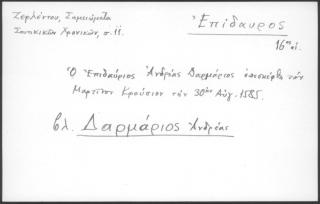 Ζερλέντου, Σημειώματα
Σιναϊτικῶν Χρονικῶν, σ. 11.
Ἐπίδαυρος
16ος αἰ.
Ὁ Ἐπιδαύριος Ἀνδρέας Δαρμάριος ἐπεσκέφθη τὸν
Μαρτῖνον Κρούσιον τὴν 30ὴν Αὐγ. 1585.
βλ. Δαρμάριος Ἀνδρέας